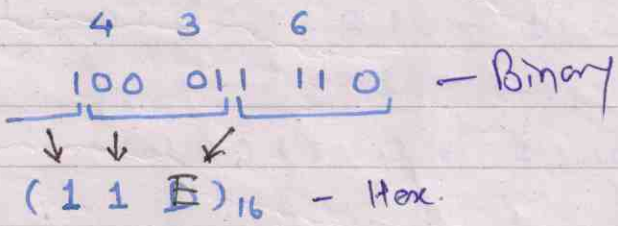 4 3 6
100 011 110 - Binary
(1 1 E)16 - Hex.